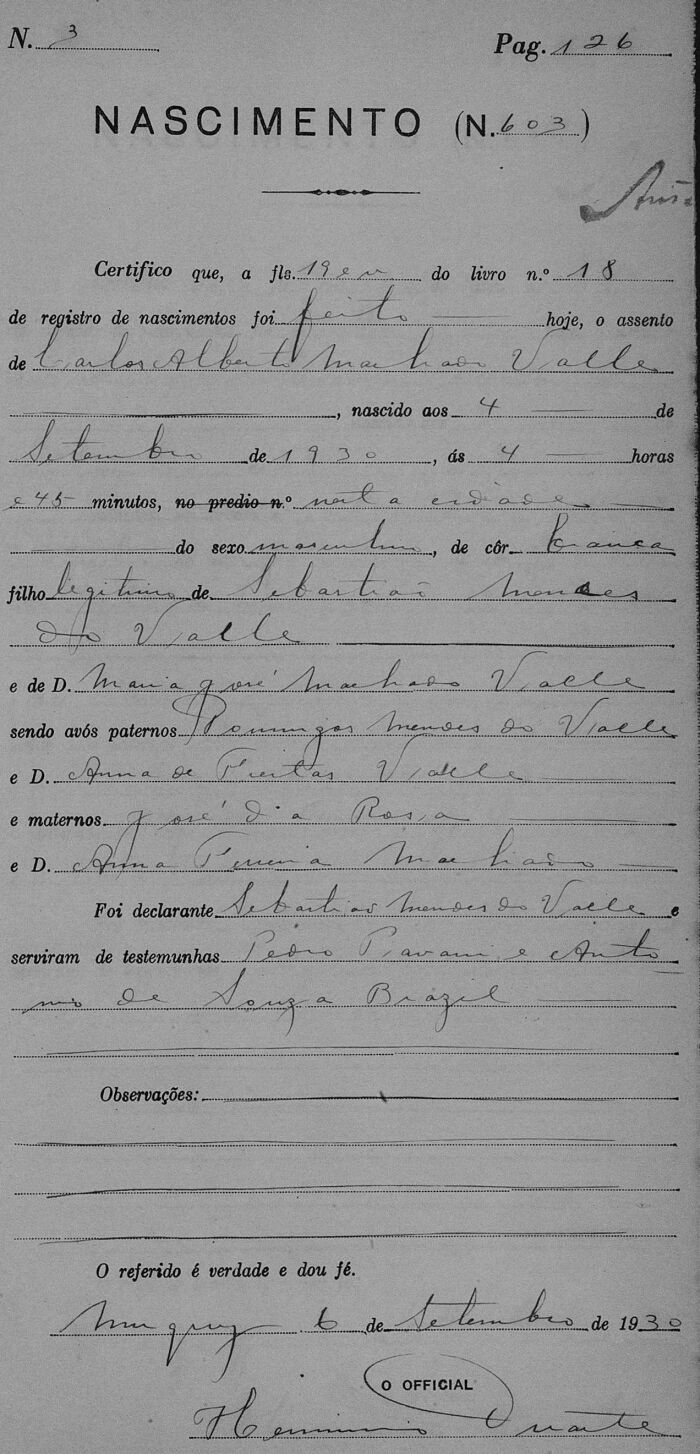 N. 3 Pag. 126
NASCIMENTO (N. 603)
Certifico que, a fls. 19 e v do livro n.º 18
de registro de nascimentos foi feito hoje, o assento
de Carlos Alberto Machado Valle
, nascido aos 4 de
Setembro de 1930, ás 4 horas
e 45 minutos, no predio n.º nesta cidade
do sexo masculino, de côr branca
filho legitimo de Sebastião Mendes
do Valle
e de D. Maria José Machado Valle
sendo avós paternos Domingos Mendes do Valle
e D. Anna de Freitas Valle
e maternos José da Rosa
e D. Anna Ferreira Machado
Foi declarante Sebastião Mendes do Valle e
serviram de testemunhas Pedro e Anto
nio de Souza Brazil
Observações:
O referido é verdade e dou fé.
6 de Setembro de 1930
O OFFICIAL
Duarte